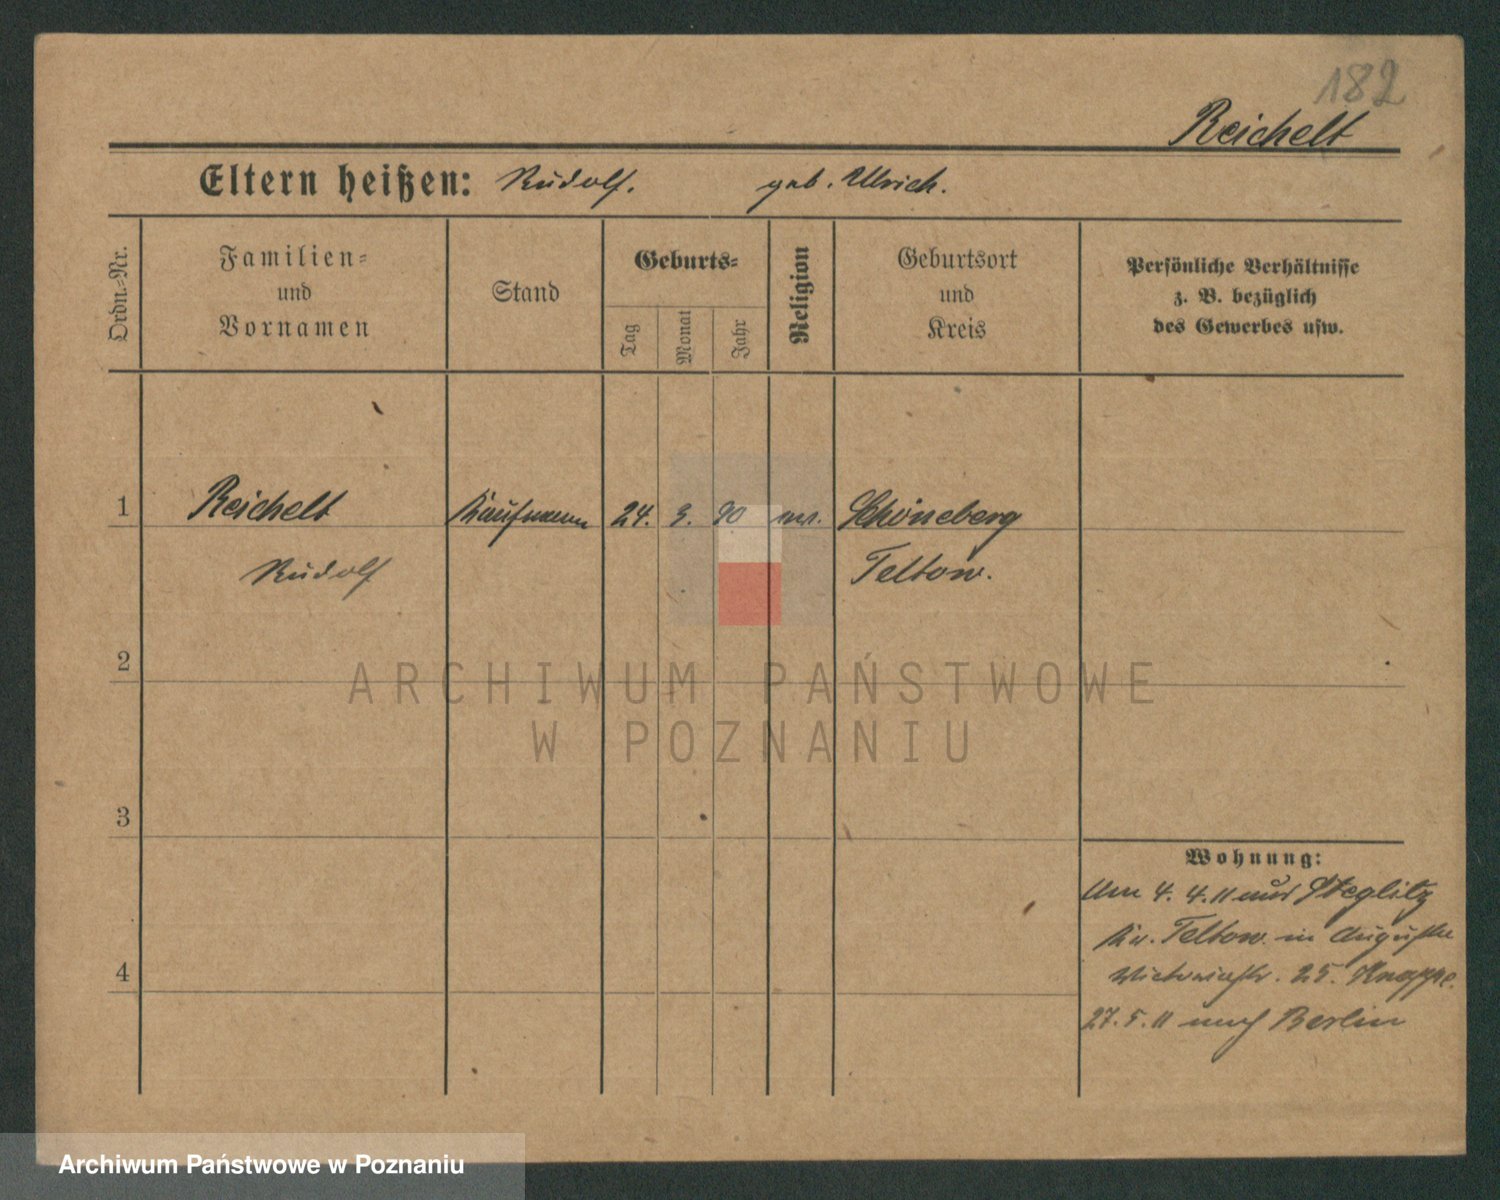 182
Reichelt
Eltern heißen: Rudolf. geb. Ulrich.
Ordn.-Nr.
Familien-
und
Vornamen
Stand
Geburts-
Tag
Monat
Jahr
Religion
Geburtsort
und
Kreis
Persönliche Verhältnisse
z. B. bezüglich
des Gewerbes usw.
1 Reichelt Kaufmann 24. 3. 90 Schöneberg
Rudolf Teltow.
2
ARCHIWUM PAŃSTWOWE
W POZNANIU
3
Wohnung:
Am 4. 4. 11 aus Steglitz
Kr. Teltow in Auguste
Victoriastr. 25. Knappe.
4
27. 5. 11 nach Berlin
Archiwum Państwowe w Poznaniu